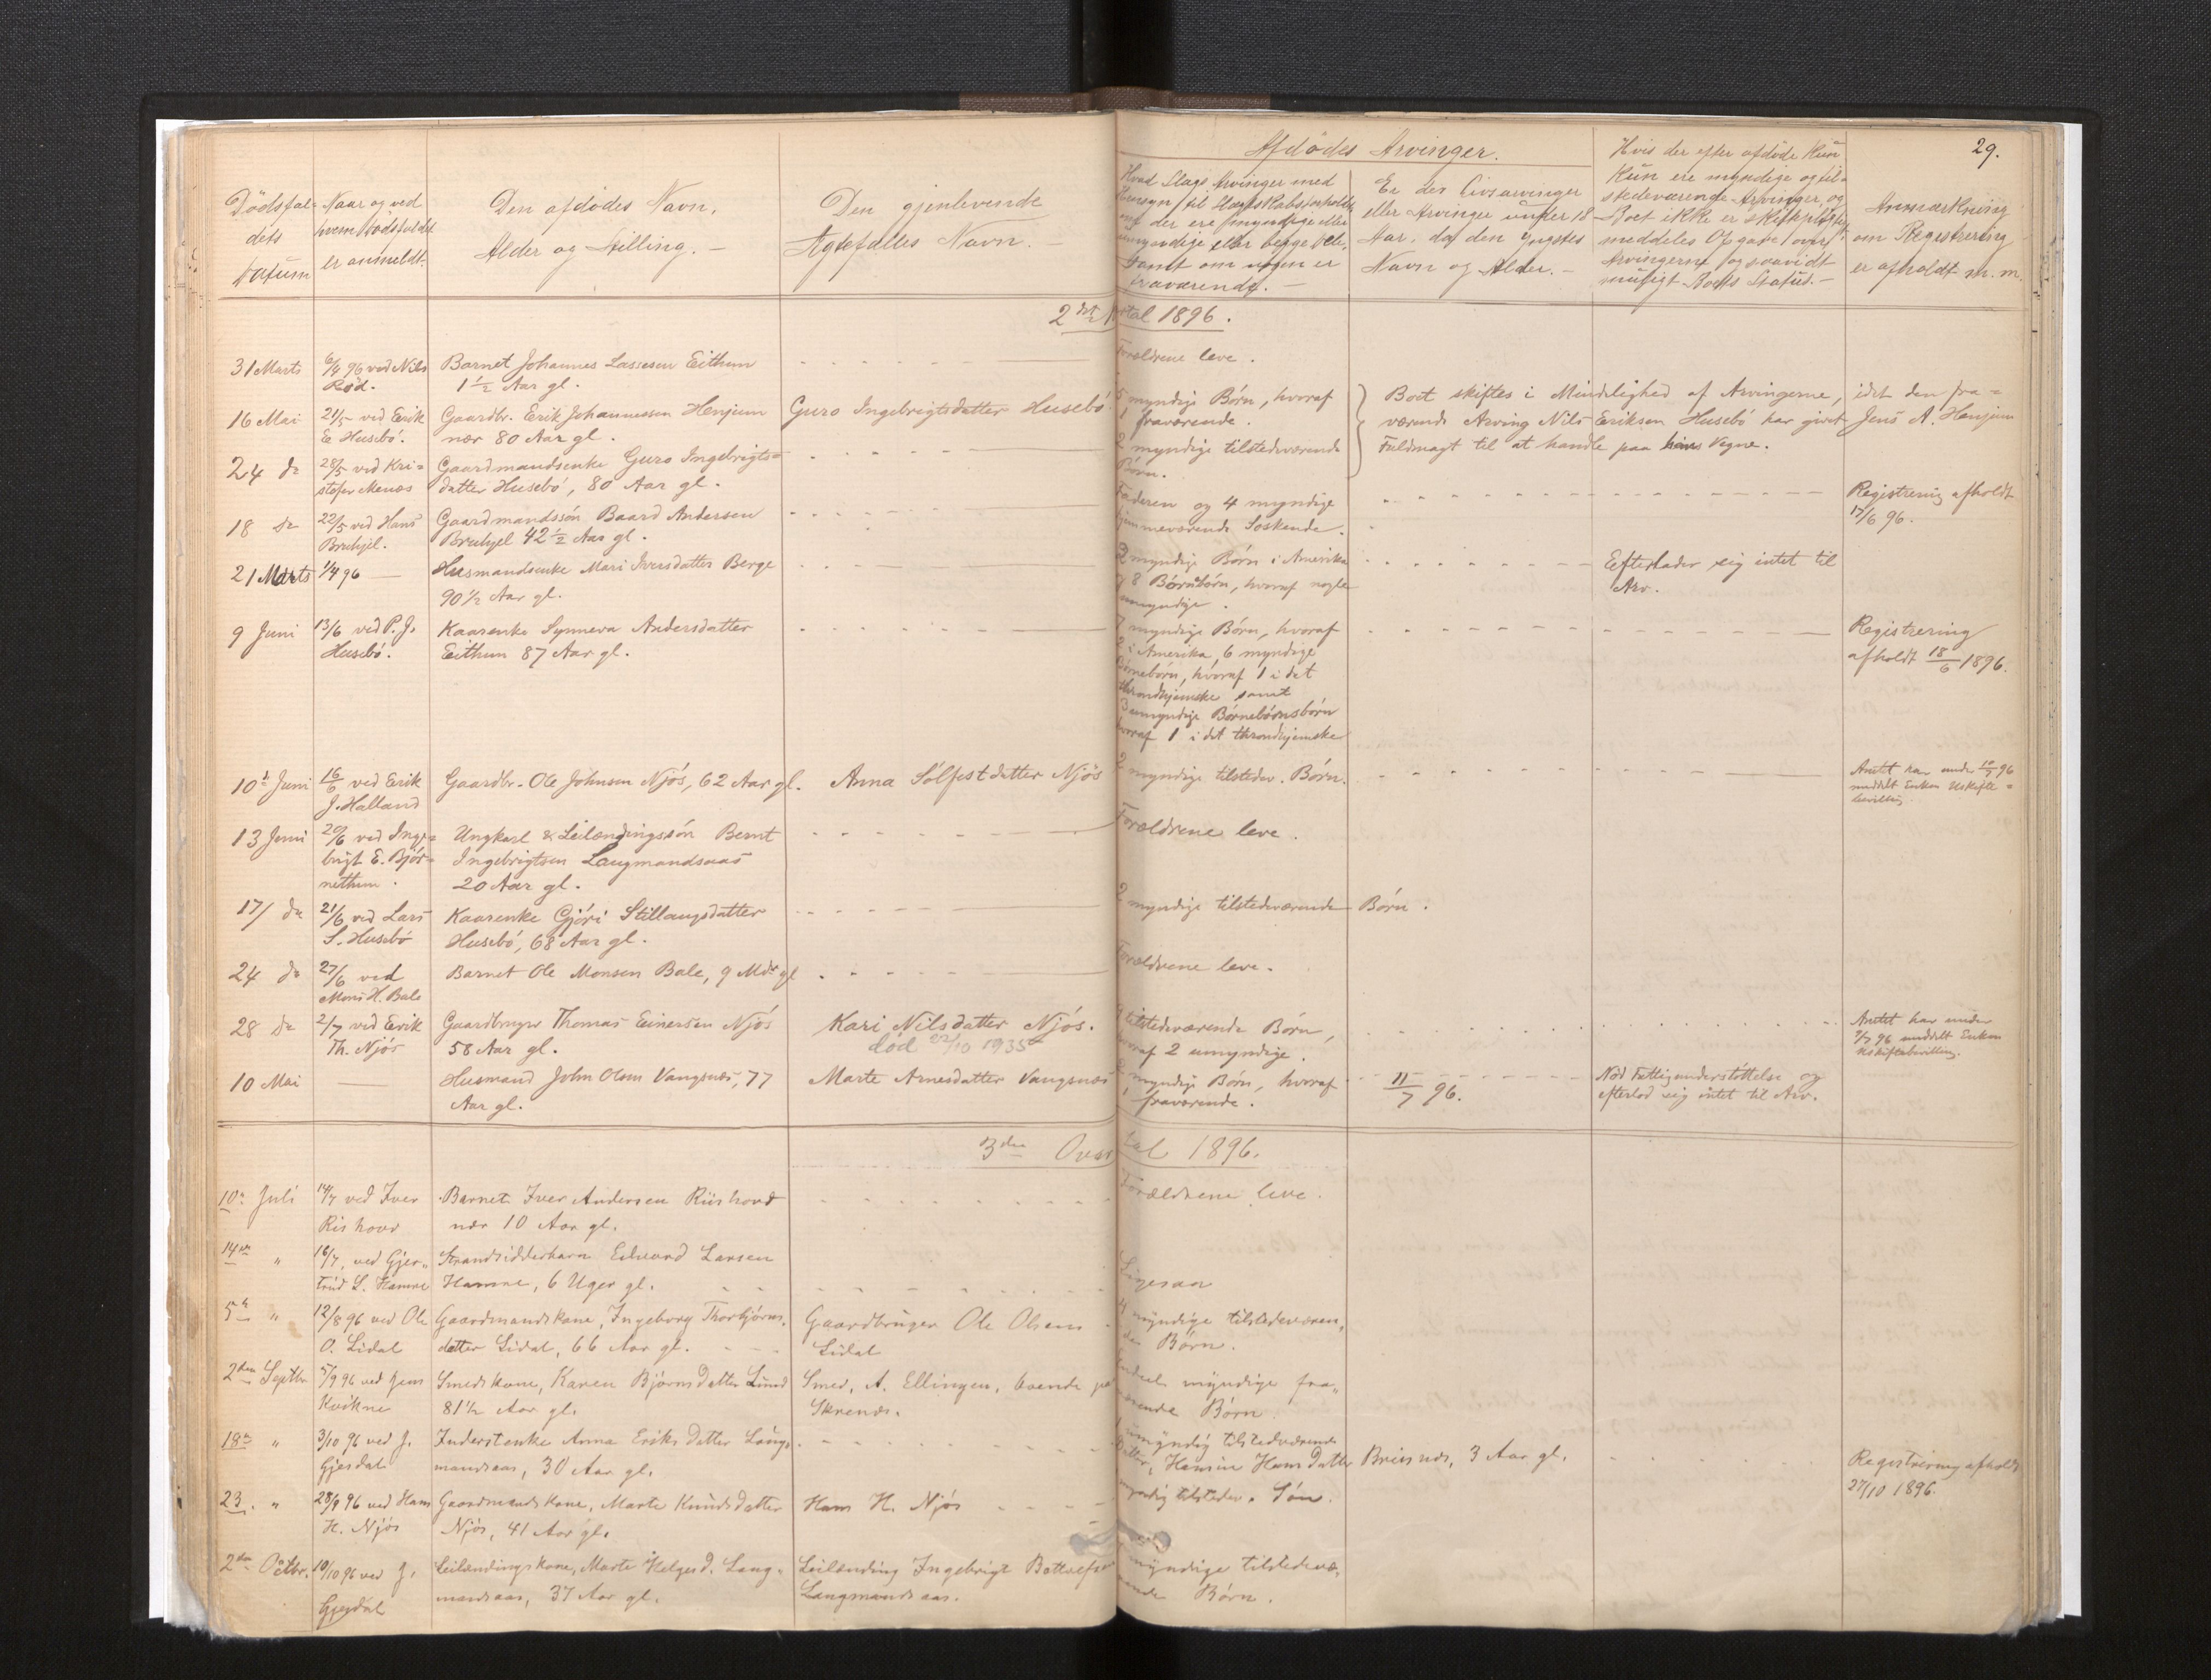 29.
Afdödes Arvinger.
Dödsfal=
dets
Datum
Naar og ved
hvem Dödsfaldet
er anmeldt.
Den afdödes Navn,
Alder og Stilling. —
Den gjenlevende
Ægtefælles Navn. —
Hvad Slags Arvinger med
Hensyn til Slægtskabsforholdet
om der ere myndige eller
umyndige eller begge Dele,
samt om nogen er
fraværende. —
Er der Livsarvinger
eller Arvinger under 18
Aar, da den yngstes
Navn og Alder. —
Hvis der efter afdöde kun
kun ere myndige og til=
stedeværende Arvinger, og
Boet ikke er skiftepligtig,
meddeles Opgave over
Arvingerne og saavidt
muligt Boets Status. —
Anmærkning
om Registrering
er afholdt m. m.
2det Kvartal 1896.
31 Marts
6/4 96 ved Nils
Röd.
Barnet Johannes Lassesen Eithun
1 1/2 Aar gl.
Forældrene leve.
16 Mai
21/5 ved Erik
E. Husebö.
Gaardbr. Erik Johannessen Henjum
nær 80 Aar gl.
Guro Ingebrigtsdatter Husebö
5 myndige Börn, hvoraf
1 fraværende.
Boet skiftes i Mindelighed af Arvingerne, idet den fra=
værende Arving Nils Eriksen Husebö har givet Jens A. Henjum
Fuldmagt til at handle paa hans Vegne.
24 do
28/5 ved Kri=
stofer Menæs
Gaardmandsenke Guro Ingebrigts=
datter Husebö, 80 Aar gl.
2 myndige tilstedeværende
Börn.
18 do
22/5 ved Hans
Brekjel.
Gaardmandssön Baard Andersen
Brekjel 42 1/2 Aar gl.
Faderen og 4 myndige
hjemmeværende Söskende.
Registrering afholdt
17/6 96.
21 Marts
1/4 96 —
Husmandsenke Mari Iversdatter Berge
90 1/2 Aar gl.
2 myndige Börn i Amerika
og 8 Börnebörn, hvoraf nogle
umyndige.
Efterlader sig intet til
Arv.
9 Juni
13/6 ved P. J.
Husebö.
Kaarenke Synneva Andersdatter
Eithun 87 Aar gl.
7 myndige Börn, hvoraf
2 i Amerika, 6 myndige
Börnebörn, hvoraf 1 i det
throndhjemske samt
3 umyndige Börnebörnsbörn
hvoraf 1 i det throndhjemske
Registrering
afholdt 18/6 1896.
10de Juni
16/6 ved Erik
J. Halland
Gaardbr. Ole Johnsen Njös, 62 Aar gl.
Anna Sölfestdatter Njös
2 myndige tilstedev. Börn.
Amtet har under 10/7 96
meddelt Enken Uskifte=
bevilling.
13 Juni
20/6 ved Inge=
brigt E. Björ=
nethun.
Ungkarl & Leilændingssön Bernt
Ingebrigtsen Laugmandsaas
20 Aar gl.
Forældrene leve.
17/ do
21/6 ved Lars
S. Husebö
Kaarenke Gjöri Stillaugsdatter
Husebö, 68 Aar gl.
2 myndige tilstedeværende Börn.
24 do
27/6 ved
Mons H. Bale
Barnet Ole Monsen Bale, 9 Mdr gl
Forældrene leve.
28 do
2/7 ved Erik
Th. Njös
Gaardbruger Thomas Einersen Njös
58 Aar gl.
Kari Nilsdatter Njös.
död 22/10 1935
tilstedeværende Börn,
hvoraf 2 umyndige.
Amtet har under
9/7 96 meddelt Enken
Uskiftebevilling.
10 Mai
—
Husmand John Olsen Vangsnæs, 77
Aar gl.
Marte Arnesdatter Vangsnæs
myndige Börn, hvoraf
1 fraværende.
11/7 96.
Nöd Fattigunderstöttelse og
efterlod sig intet til Arv.
3die Qvartal 1896.
10de Juli
14/7 ved Iver
Rishovd
Barnet Iver Andersen Riishovd
nær 10 Aar gl.
Forældrene leve.
14de "
16/7, ved Gjer=
trud L. Hamre
Strandsidderbarn Edvard Larsen
Hamre, 6 Uger gl.
Ligesaa
5te "
12/8 96 ved Ole
O. Lidal
Gaardmandskone, Ingeborg Thorbjörns=
datter Lidal, 66 Aar gl.
Gaardbruger Ole Olsen
Lidal
4 myndige tilstedeværen=
de Börn.
2den Septbr
5/9 96 ved Jens
Kvikne
Smedskone, Karen Björnsdatter Lund
81 1/2 Aar gl.
Smed, A. Ellingen, boende paa
Skrenes.
myndige fra=
værende Börn.
18de "
3/10 96 ved J.
Gjesdal
Inderstenke Anna Eriksdatter Laug=
mandsaas, 30 Aar gl.
1 umyndig tilstedeværende
Datter, Hansine Hansdatter Breisnes, 3 Aar gl.
Registrering afholdt
27/10 1896.
23. "
28/9 96 ved Hans
H. Njös
Gaardmandskone, Marte Knudsdatter
Njös, 41 Aar gl.
Hans H. Njös
myndig tilstedev. Sön.
2den Octbr.
10/10 96 ved J.
Gjesdal
Leilændingskone, Marte Helgesd. Laug=
mandsaas, 37 Aar gl.
Leilænding Ingebrigt Bottolfsen
Laugmandsaas.
myndige tilstedevæ=
rende Börn.